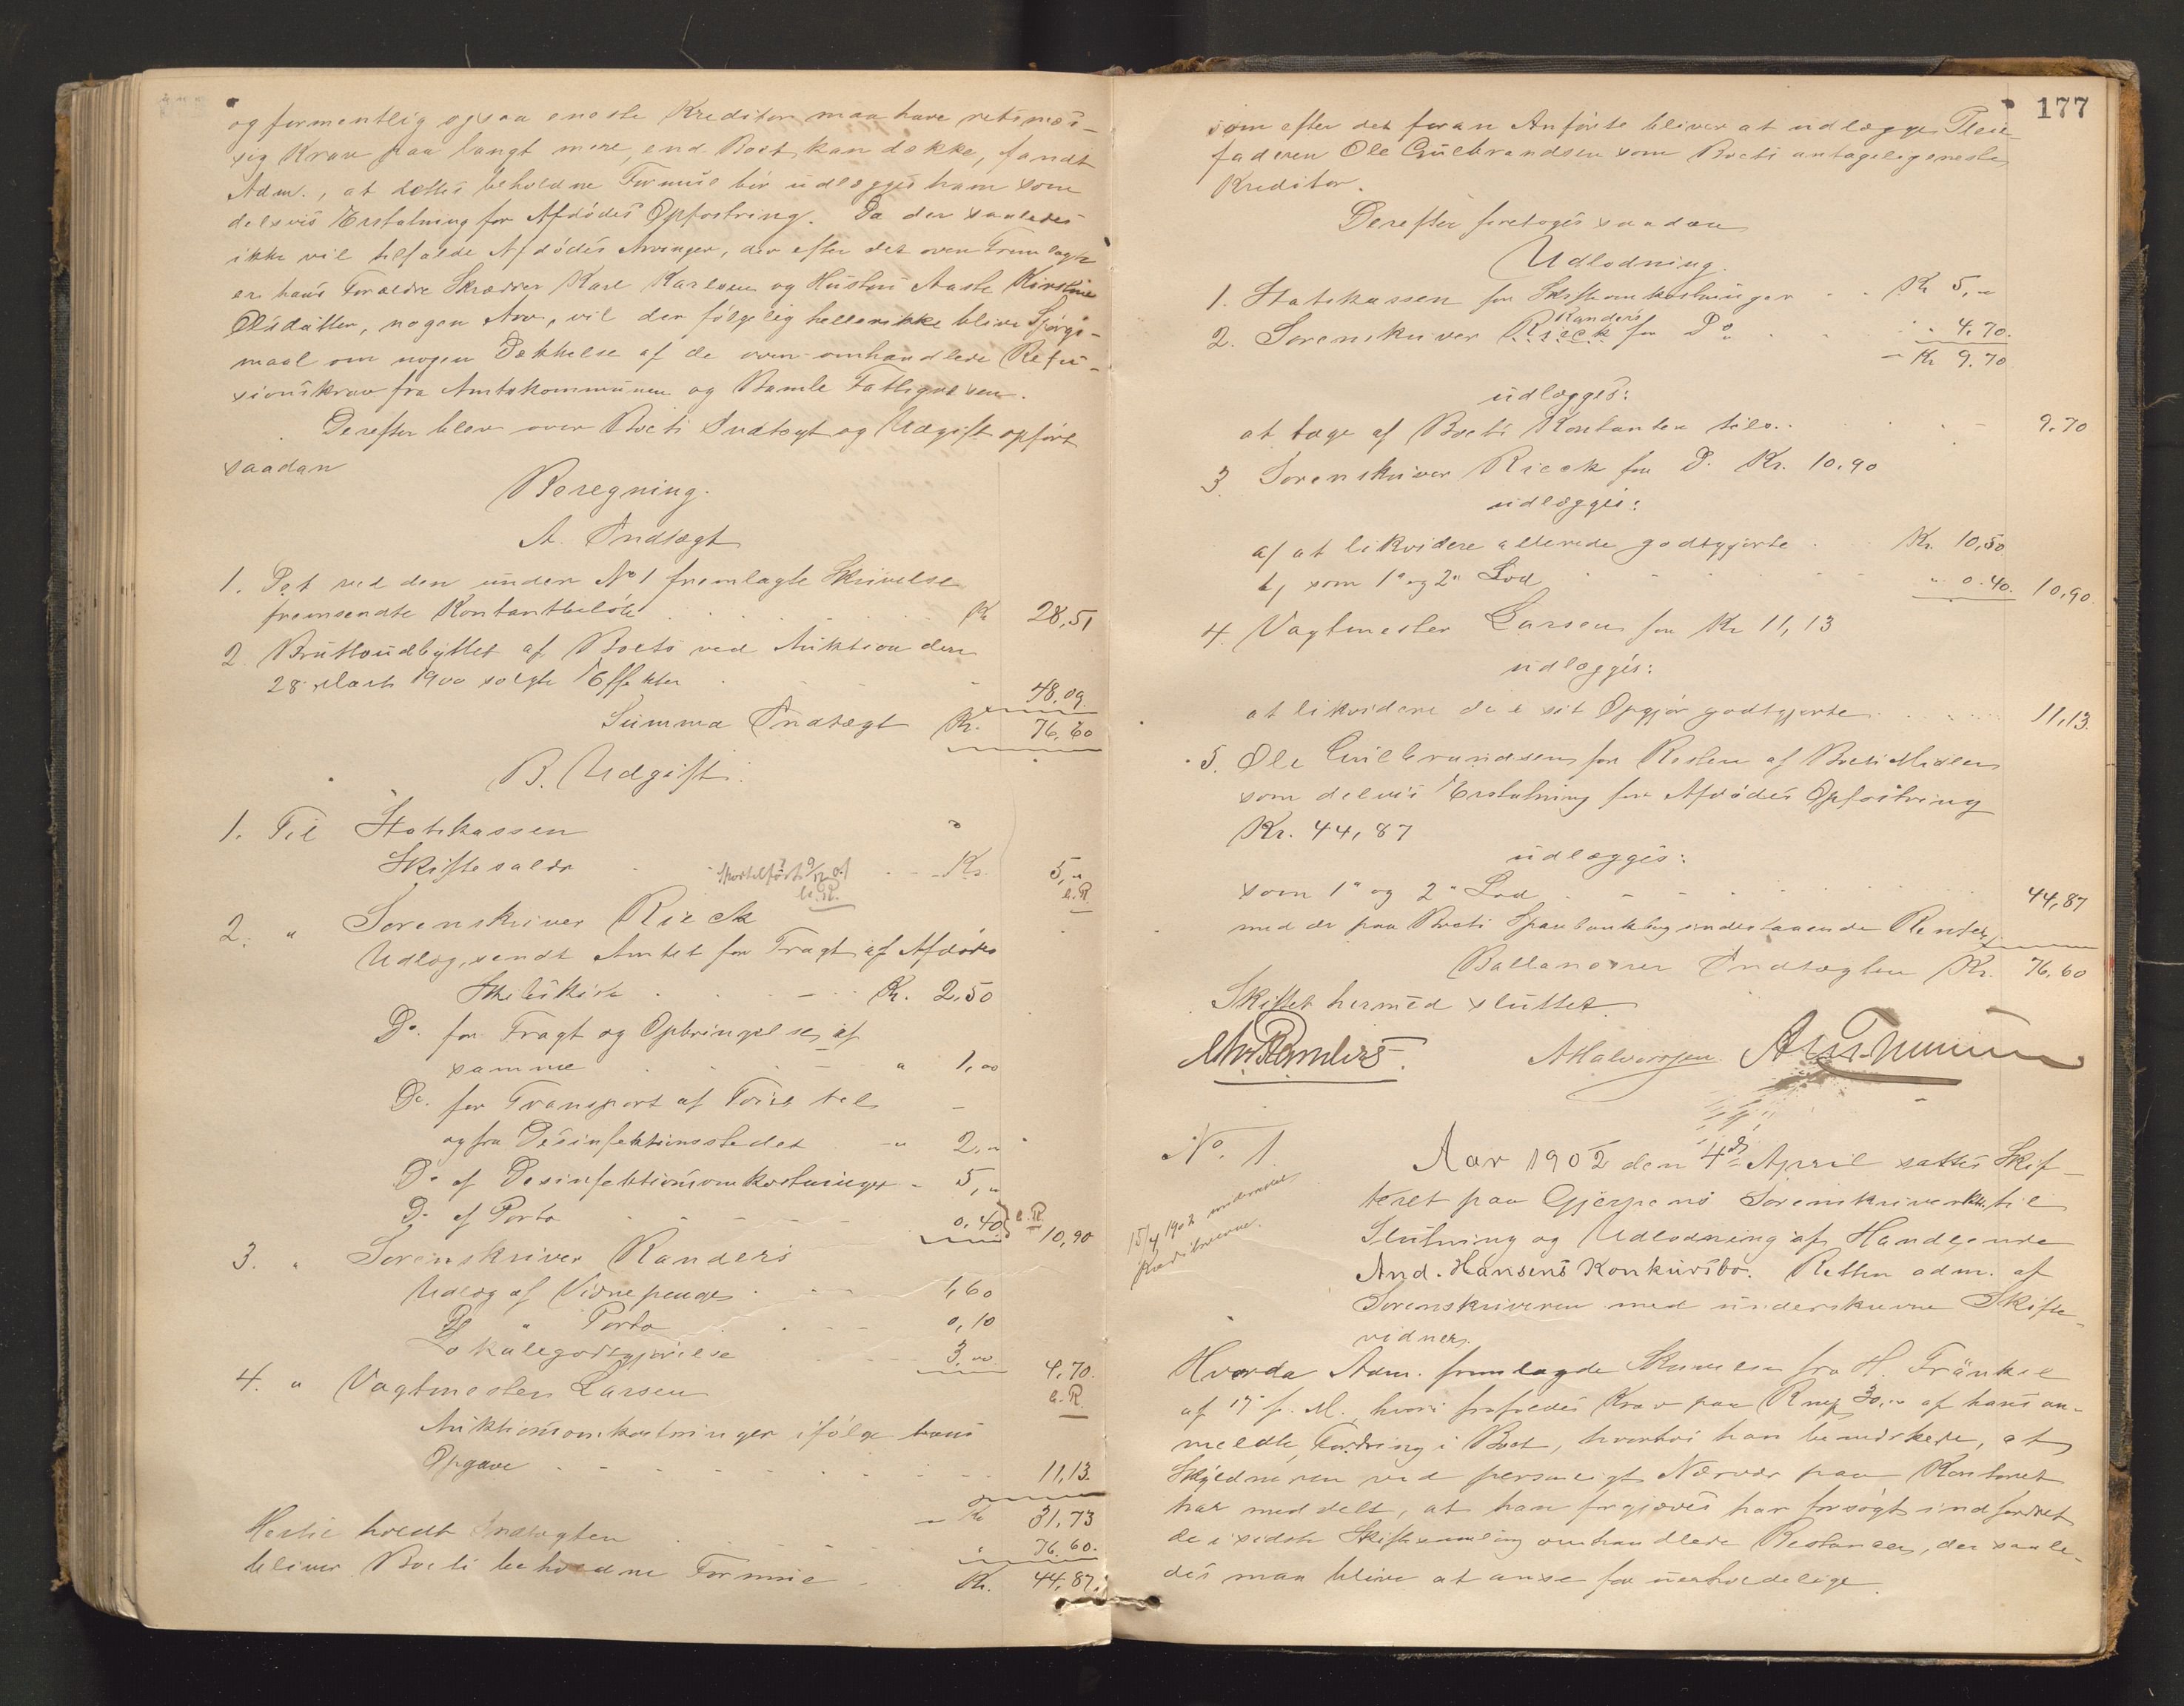 og formentlig ogsaa eneste Kreditor maa have retsmæs-
sig Krav paa langt mere, end Boet kan dække, fandt
Adm., at dettes beholdne Formue bör udlægges ham som
delsvis Erstatning for Afdödes Opfostring. Da der saaledes
ikke vil tilfalde Afdödes Arvinger, der efter det oven Fremlagte
er hans Forældre Skrædder Karl Karlsen og Hustru Aaste Kirstine
Olsdatter, nogen Arv, vil der fölgelig hellerikke blive Spörgs-
maal om nogen Dækkelse af de oven omhandlede Refu-
sionskrav fra Amtskommunen og Bamle Fattigvæsen.
Derefter blev over Boets Indtægt og Udgift opfört
saadan
Beregning.
A. Indtægt
1. Det ved den under No 1 fremlagte Skrivelse
fremsendte Kontantbelöb Kr 28,51
2. Bruttoudbyttet af Boets ved Auktion den
28 Marts 1900 solgte Effekter 48.09
Summa Indtægt Kr. 76,60
B. Udgift.
1. Til Statskassen
Skiftesalær Kr. 5,"
2. " Sorenskriver Rieck
Udlæg, sendt Amtet for Fragt af Afdödes
Skibskiste Kr. 2,50
Do. for Fragt og Opbringelse af
samme " 1,00
Do. for Transport af Töiet til
og fra Desinfektionsstedet " 2,"
Do af Desinfektionsomkostninger - 5,"
Do af Porto 0,40 10,90
3. " Sorenskriver Randers
Udlæg af Vidnepenge 1,60
Do " Porto 0,10
Lokalegodtgjörelse 3,00 4,70.
4. " Vagtmester Larsen
Auktionsomkostninger ifölge hans
Opgave 11,13.
Kr 31,73
Hertil holdt Indtægten " 76.60.
bliver Boets beholdne Formue Kr. 44,87.
177
som efter det foran Anförte bliver at udlægge Pleie-
faderen Ole Gulbrandsen som Boets antageligeneste
Kreditor.
Derefter foretoges saadan
Udlodning.
1. Statskassen for Skifteomkostninger Kr 5,"
Randers
2. Sorenskriver Rieck for Do " 4.70.
Kr 9.70
udlægges:
at tage af Boets Kontanter 9.70
3. Sorenskriver Rieck for D. Kr. 10,90
udlægges:
a/ at likvidere allerede godtgjorte Kr. 10,50
b/ som 1" og 2" Lod " 0.40. 10,90.
4. Vagtmester Larsen for Kr 11,13
udlægges:
at likvidere de i sit Opgjör godtgjorte 11,13.
5. Ole Gulbrandsen for Resten af Boets Midler
som delvis Erstatning for Afdödes Opfostring
Kr. 44,87
udlægges:
som 1" og 2" Lod 44,87
med de paa Boets Sparebankbog indestaaende Renter,
Ballancerer Indtægten Kr. 76,60
Skiftet hermed sluttet.
Chr Randers. AHalvorsen
No. 1.
Aar 1902 den 4de April sattes Skif-
teret paa Gjerpens Sorenskriverktr. til
Slutning og Udlodning af Handlende
And. Hansens Konkursbo. Retten adm. af
Sorenskriveren med underskrevne Skifte-
vidner.
15/4 1902
Kreditorerne.
Hvorda Adm. fremlagde Skrivelse fra H. Fränkel
af 17 f. M., hvori frafoldes Krav paa Rmk 30,00 af hans an-
meldte Fordring i Boet, hvorhos han bemærkede, at
Skyldneren ved personligt Nærvær paa Kontoret
har meddelt, at han forgjæves har forsögt indfordret
de i sidste Skiftesamling omhandlede Restancer, der saale-
des maa blive at anse for uerholdelige.